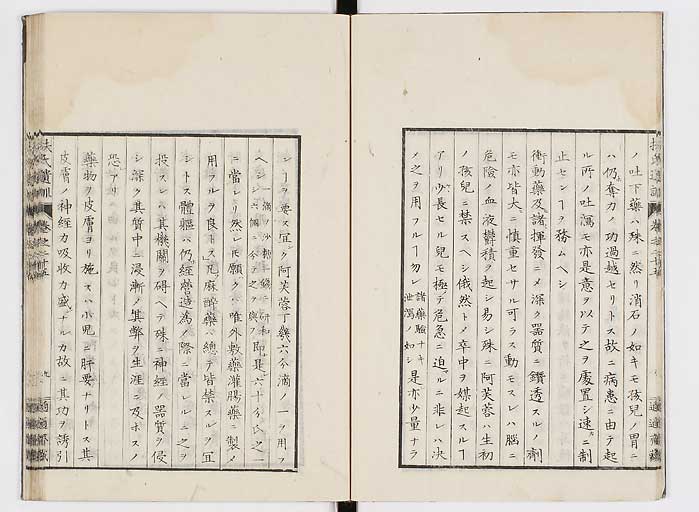 ノ吐下藥ハ殊ニ然リ消石ノ如キモ孩兒ノ胃ニ
ハ仍奪力ノ功過越セリトス故ニ病患ニ由テ起
ル所ノ吐瀉モ亦是意ヲ以テ之ヲ處置シ速ニ制
止センヿヲ務ムヘシ
衝動藥及諸揮發ニメ深ク器質ニ鑽透スルノ劑
モ亦皆大ニ慎重セサル可ラス動モスレハ脳ニ
危險ノ血液鬱積ヲ起シ易シ殊ニ阿芙蓉ハ生初
ノ孩兒ニ禁スヘシ俄然トメ卒中ヲ媒起スルヿ
アリ少長セル兒モ極テ危急ニ迫ルニ非レハ决
ノ之ヲ用フルヿ勿レ諸藥驗ナキ泄瀉ノ如シ是亦少量ナラ
シヿヲ要ス宜ク阿芙蓉丁幾六分滴ノ一ヲ用フ
ヘシ
ニ當レリ然レ𪜈願クハ唯外敷藥灌腸藥ニ製メ
用フルヲ良トス凡麻醉藥ハ總テ皆禁スルヲ宜
シトス體軀ハ仍經營造為ノ際ニ當レルニ之ヲ
投スレハ其機關ヲ碍ヘテ殊ニ神經ノ器質ヲ侵
シ深ク其質中ニ浸漸メ其弊ヲ生涯ニ及ホスノ
恐アリ
藥物ヲ皮膚ヨリ施スハ小兒ニ肝要ナリトス其
皮膚ノ神經力吸收力盛ナルカ故ニ其功ヲ誘引
扶氏遺訓